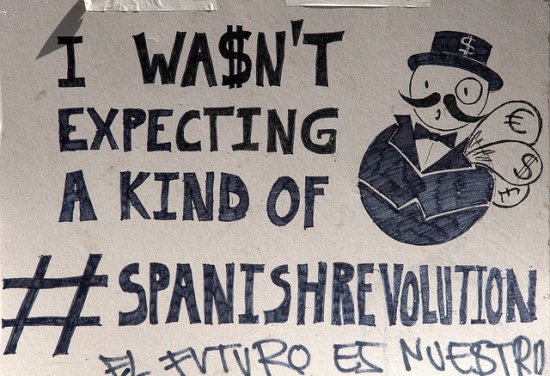 I WA$N'T
EXPECTING
A KIND OF
#SPANISHREVOLUTION
EL FUTURO ES NUESTRO
$
€
$
£